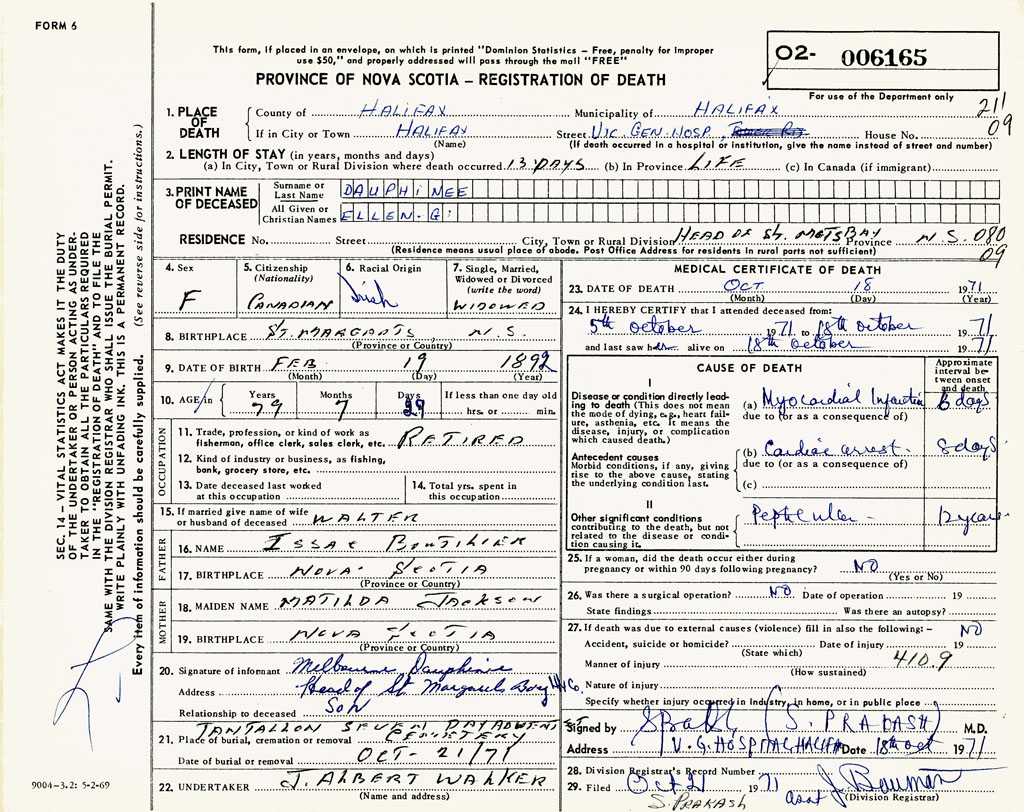 FORM 6
This form, if placed in an envelope, on which is printed "Dominion Statistics – Free, penalty for improper
use $50," and properly addressed will pass through the mail "FREE"
PROVINCE OF NOVA SCOTIA – REGISTRATION OF DEATH
02- 006165
For use of the Department only
211
09
1. PLACE OF DEATH
County of HALIFAX Municipality of HALIFAX
If in City or Town HALIFAX Street VIC. GEN. HOSP. House No.
(Name) (If death occurred in a hospital or institution, give the name instead of street and number)
2. LENGTH OF STAY (in years, months and days)
(a) In City, Town or Rural Division where death occurred 13 DAYS (b) In Province LIFE (c) In Canada (if immigrant)
3. PRINT NAME OF DECEASED
Surname or Last Name DAUPHINEE
All Given or Christian Names ELLEN. G.
RESIDENCE No. Street City, Town or Rural Division HEAD OF ST. MGTS BAY Province N.S. 080
(Residence means usual place of abode. Post Office Address for residents in rural parts not sufficient) 09
4. Sex F
5. Citizenship (Nationality) CANADIAN
6. Racial Origin Irish
7. Single, Married, Widowed or Divorced (write the word) WIDOWED
8. BIRTHPLACE ST. MARGRETS N.S.
(Province or Country)
9. DATE OF BIRTH FEB 19 1892
(Month) (Day) (Year)
10. AGE in Years 79 Months 7 Days 29 If less than one day old hrs. or min.
OCCUPATION
11. Trade, profession, or kind of work as fisherman, office clerk, sales clerk, etc. RETIRED
12. Kind of industry or business, as fishing, bank, grocery store, etc.
13. Date deceased last worked at this occupation
14. Total yrs. spent in this occupation
15. If married give name of wife or husband of deceased WALTER
FATHER
16. NAME ISSAC BOUTILIER
17. BIRTHPLACE NOVA SCOTIA
(Province or Country)
MOTHER
18. MAIDEN NAME MATILDA JACKSON
19. BIRTHPLACE NOVA SCOTIA
(Province or Country)
20. Signature of informant Melbourne Dauphinee
Address Head of St. Margarets Bay Hfx Co.
Relationship to deceased Son
TANTALLON SEVEN DAY ADVENTIST
21. Place of burial, cremation or removal CEMETERY
Date of burial or removal OCT- 21/71
22. UNDERTAKER J. ALBERT WALKER
(Name and address)
MEDICAL CERTIFICATE OF DEATH
23. DATE OF DEATH OCT 18 1971
(Month) (Day) (Year)
24. I HEREBY CERTIFY that I attended deceased from:
5th October 1971 to 18th October 1971
and last saw her alive on 18th October 1971
CAUSE OF DEATH
Approximate interval between onset and death
I
Disease or condition directly leading to death (This does not mean the mode of dying, e.g., heart failure, asthenia, etc. It means the disease, injury, or complication which caused death.)
(a) Myocardial Infarction 8 days
due to (or as a consequence of)
Antecedent causes
Morbid conditions, if any, giving rise to the above cause, stating the underlying condition last.
(b) Cardiac arrest. 8 days
due to (or as a consequence of)
(c)
II
Other significant conditions contributing to the death, but not related to the disease or condition causing it.
12 years
25. If a woman, did the death occur either during pregnancy or within 90 days following pregnancy? NO
(Yes or No)
26. Was there a surgical operation? NO Date of operation 19
State findings Was there an autopsy?
27. If death was due to external causes (violence) fill in also the following:– NO
Accident, suicide or homicide? Date of injury 19
(State which) 410.9
Manner of injury
(How sustained)
Nature of injury
Specify whether injury occurred in Industry, in home, or in public place
Signed by (S. PRADASH) M.D.
Address V.G. HOSPITAL HALIFAX Date 18th Oct 1971
28. Division Registrar's Record Number
29. Filed Oct 21 1971 asst J. Bauman
(Division Registrar)
S. PRAKASH
SEC. 14 – VITAL STATISTICS ACT MAKES IT THE DUTY
OF THE UNDERTAKER OR PERSON ACTING AS UNDER-
TAKER TO OBTAIN ALL THE PARTICULARS REQUIRED
IN THE "REGISTRATION OF DEATH" AND TO FILE THE
SAME WITH THE DIVISION REGISTRAR WHO SHALL ISSUE THE BURIAL PERMIT.
WRITE PLAINLY WITH UNFADING INK. THIS IS A PERMANENT RECORD.
Every item of information should be carefully supplied. (See reverse side for instructions.)
9004-3.2: 5-2-69